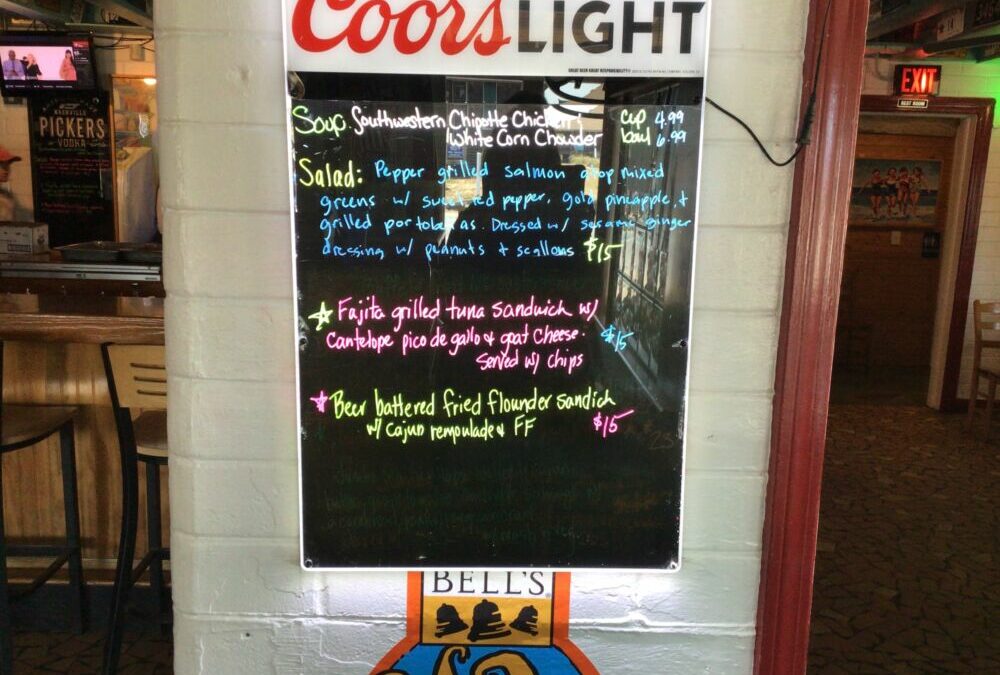 Coors LIGHT
NASHVILLE
PICKERS
VODKA
EXIT
REST ROOM
Soup: Southwestern Chipotle Chicken & cup 4.99
White Corn Chowder bowl 6.99
Salad: Pepper grilled salmon atop mixed
greens w/ sweet red pepper, gold pineapple, +
grilled portobellas. Dressed w/ sesame ginger
dressing w/ peanuts + scallons $15
Fajita grilled tuna sandwich w/
Cantelope pico de gallo & goat cheese. $15
Served w/ chips
Beer battered fried flounder sandich
w/ Cajun remoulade & FF $15
BELL'S